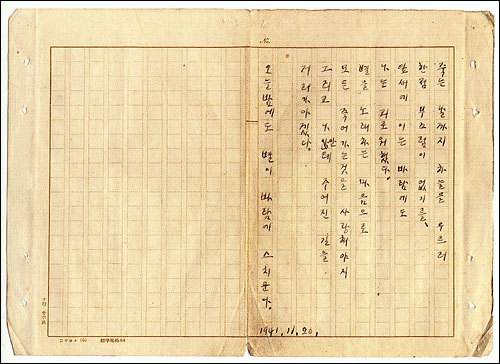 죽는 날까지 하늘을 우르러
한점 부끄럼이 없기를,
잎새에 이는 바람에도
나는 괴로워했다.
별을 노래하는 마음으로
모든 죽어가는것을 사랑해야지
그리고 나안테 주어진 길을
거러가야겠다.
오늘밤에도 별이 바람에 스치운다.
1941. 11. 20.
No.